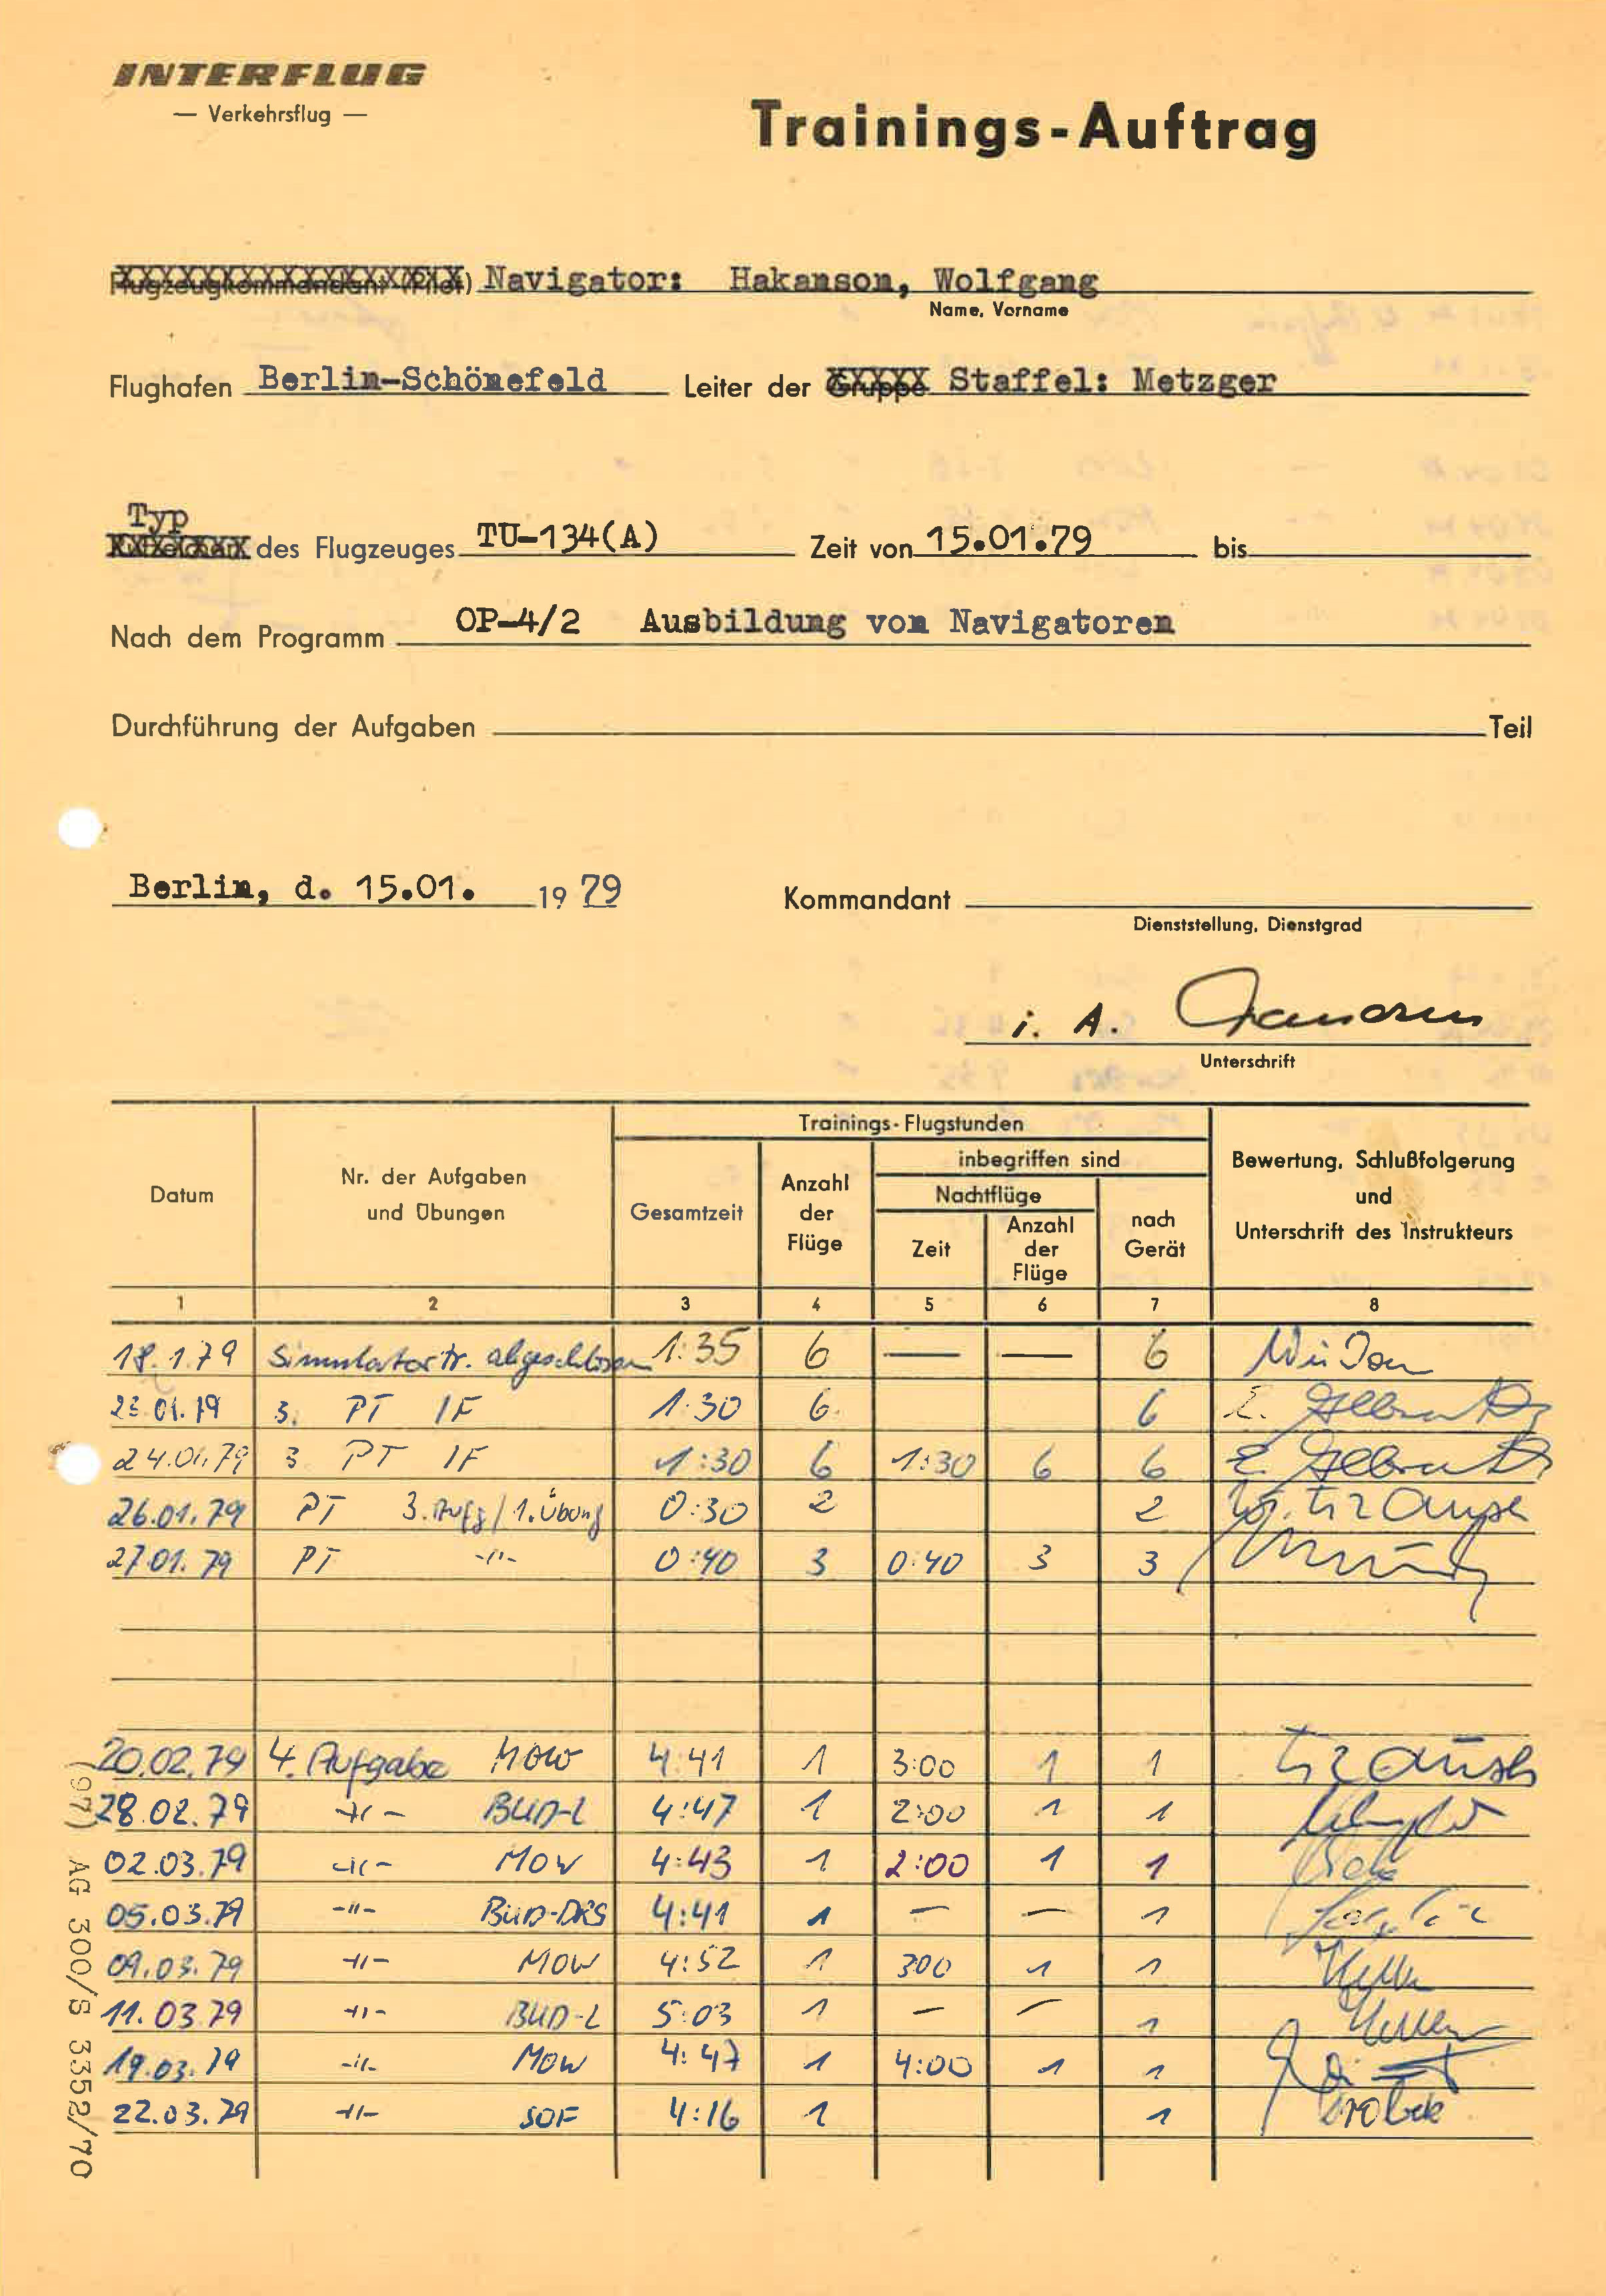 INTERFLUG
— Verkehrsflug —
Trainings-Auftrag
Flugzeugkommandant (Pilot) Navigator: Hakanson, Wolfgang
Name, Vorname
Flughafen Berlin-Schönefeld Leiter der Gruppe Staffel: Metzger
Typ
des Flugzeuges TU-134(A) Zeit von 15.01.79 bis
Nach dem Programm OP-4/2 Ausbildung von Navigatoren
Durchführung der Aufgaben Teil
Berlin, d. 15.01. 1979 Kommandant
Dienststellung, Dienstgrad
i. A.
Unterschrift
Trainings-Flugstunden
inbegriffen sind
Nachtflüge
Datum
Nr. der Aufgaben
und Übungen
Gesamtzeit
Anzahl
der
Flüge
Zeit
Anzahl
der
Flüge
nach
Gerät
Bewertung, Schlußfolgerung
und
Unterschrift des Instrukteurs
1 2 3 4 5 6 7 8
18.1.79 Simulatortr. abgeschlossen 1:35 6 — — 6
23.01.79 3. PT IF 1:30 6. 6
24.01.79 3 PT IF 1:30 6 1:30 6 6
26.01.79 PT 3. Aufg/1. Übung 0:30 2 2
27.01.79 PT -"- 0:40 3 0:40 3 3
20.02.79 4. Aufgabe MOW 4:41 1 3:00 1 1
28.02.79 -"- BUD-L 4:47 1 2:00 1 1
02.03.79 -"- MOW 4:43 1 2:00 1 1
05.03.79 -"- BUD-DRS 4:41 1 — — 1
09.03.79 -"- MOW 4:52 1 300 1 1
11.03.79 -"- BUD-L 5:03 1 — — 1
19.03.79 -"- MOW 4:47 1 4:00 1 1
22.03.79 -"- SOF 4:16 1 1
(97) AG 300/S 3352/70